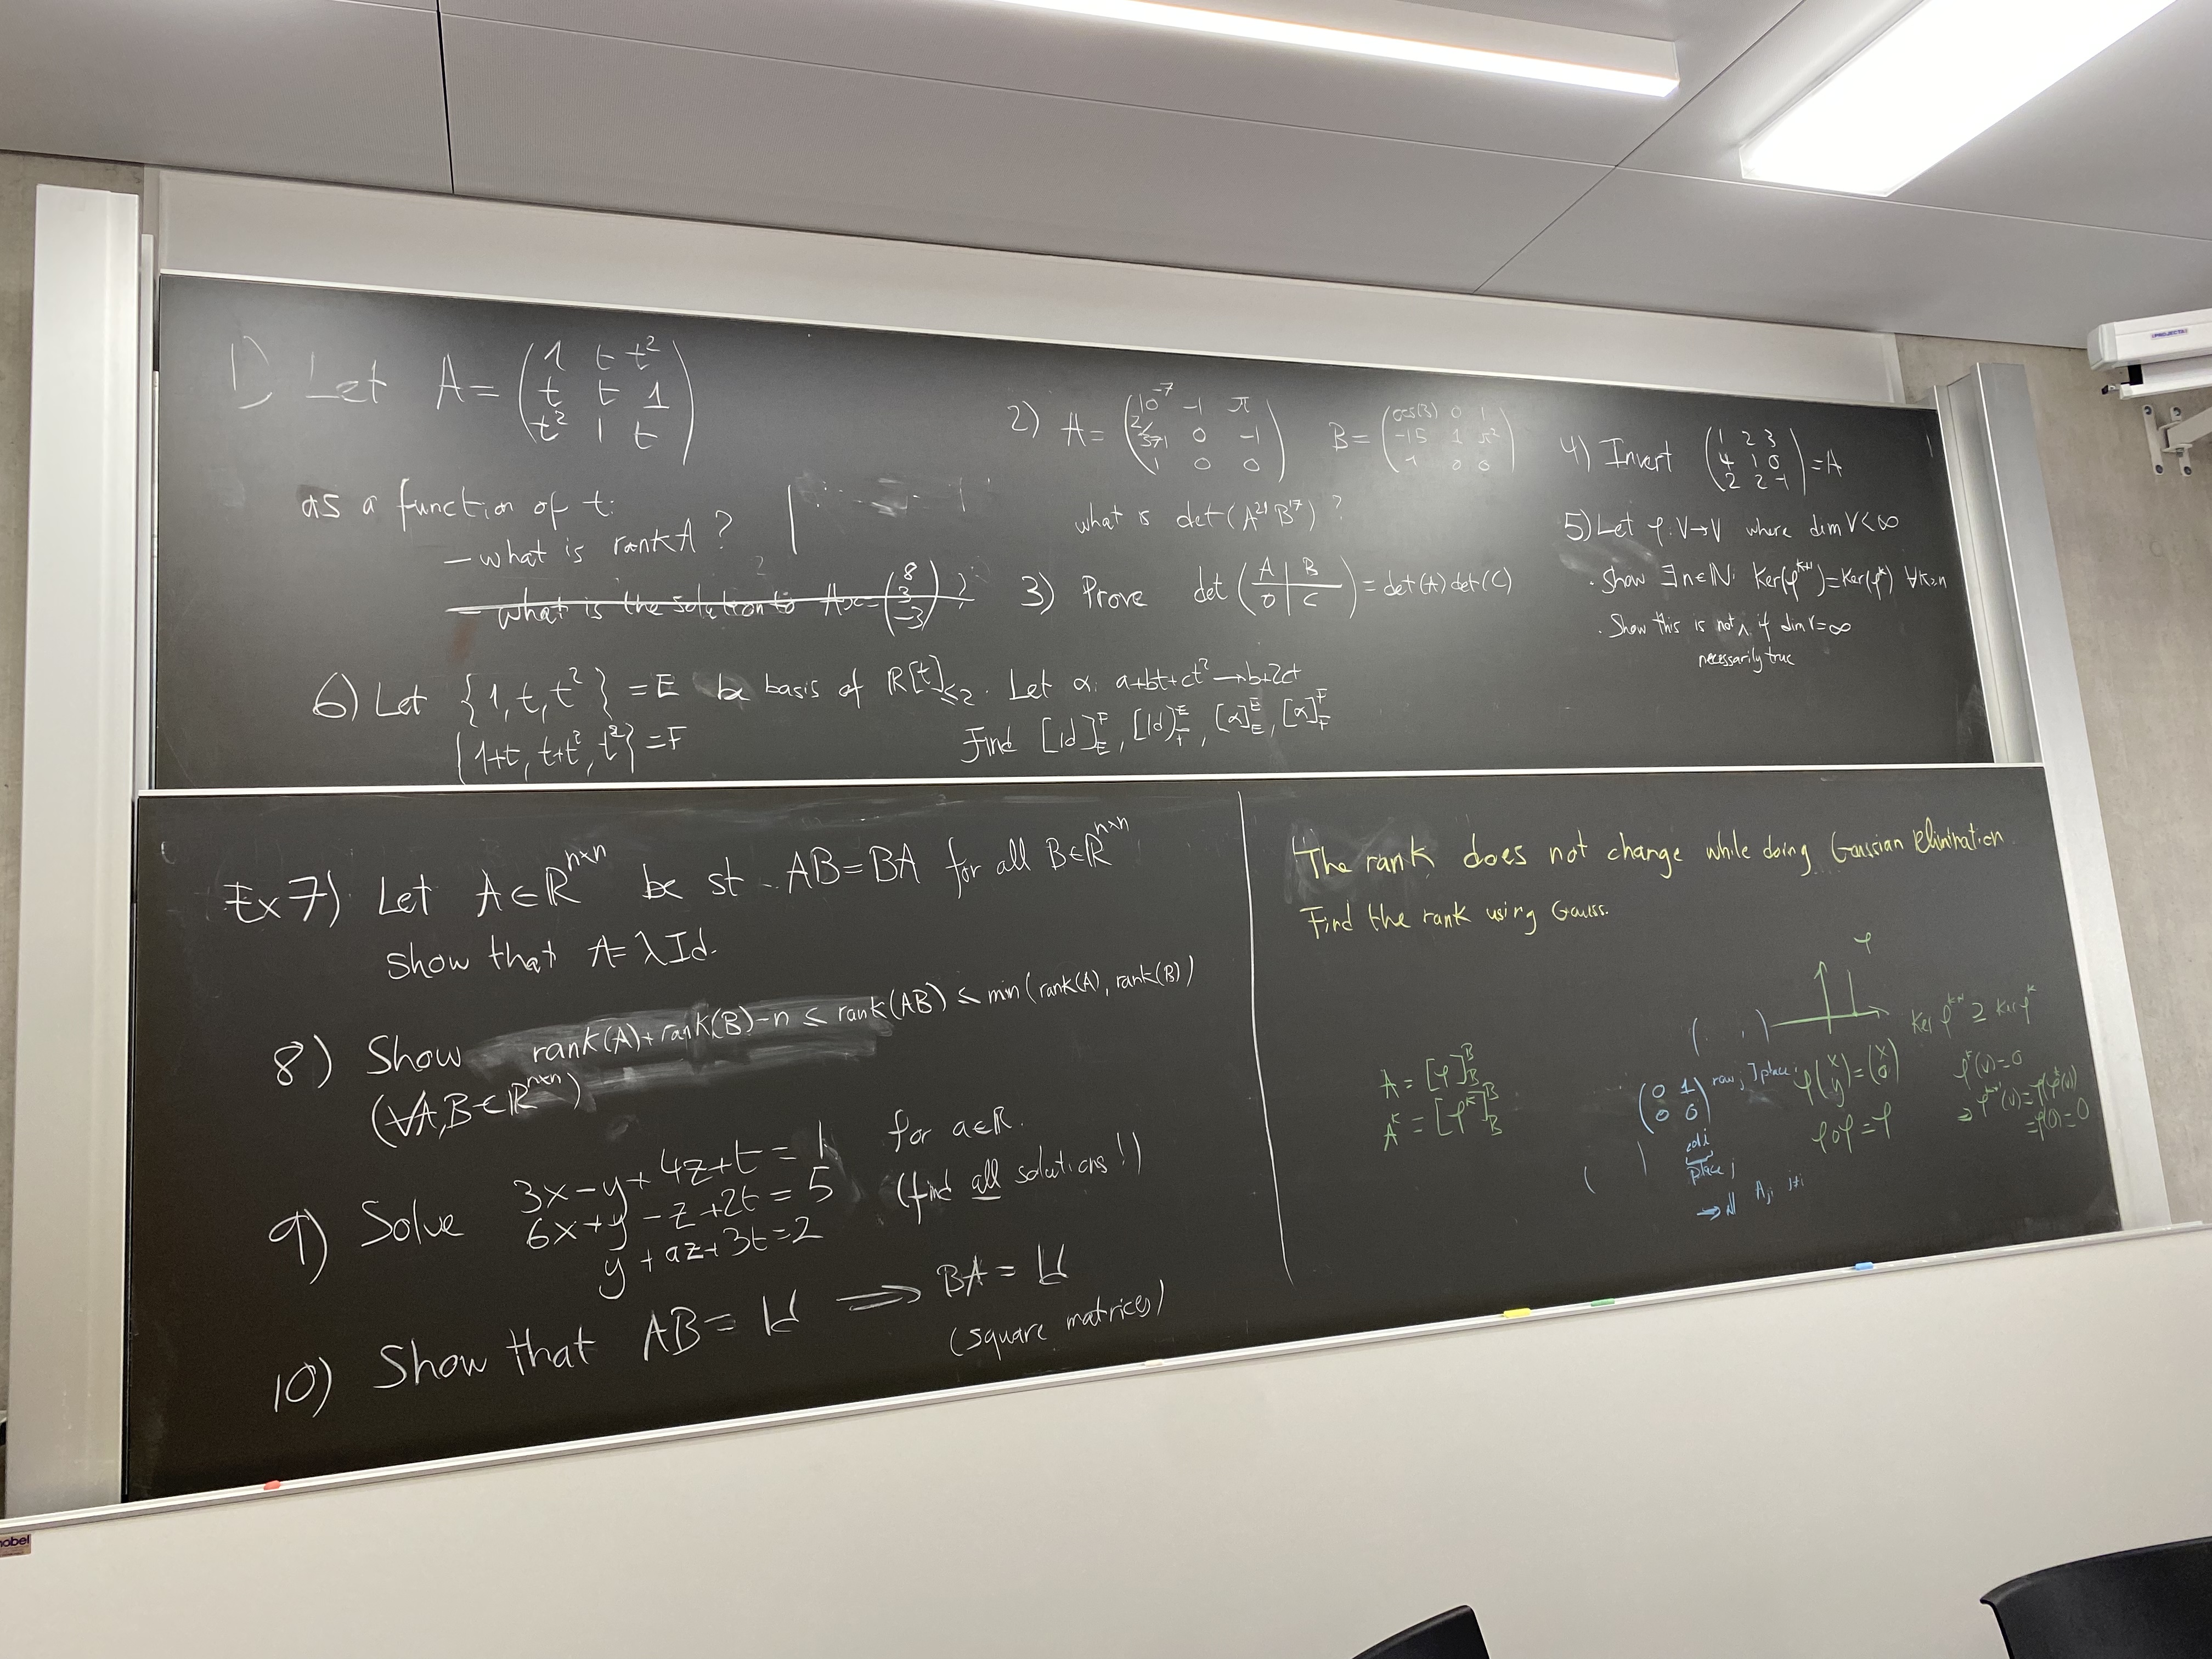 1) Let A = (1 t t²
t t 1
t² 1 t)
as a function of t:
- what is rank A ?
- what is the solution to Ax = (8 3 -3) ?
2) A = (10⁻⁷ -1 π
2/371 0 -1
1 0 0)
B = (cos(3) 0 1
-15 1 π²
1 0 0)
what is det(A²¹B¹⁷) ?
3) Prove det (A | B
0 | C) = det(A) det(C)
4) Invert (1 2 3
4 1 0
2 2 -1) = A
5) Let φ: V→V where dim V < ∞
· Show ∃n∈ℕ: Ker(φᵏ⁺¹) = Ker(φᵏ) ∀k≥n
· Show this is not ∧ if dim V = ∞
necessarily true
6) Let {1, t, t²} = E be basis of ℝ[t]≤2. Let α: a+bt+ct² → b+2ct
{1+t, t+t², t²} = F
Find [Id]ᶠ_E, [Id]ᴱ_F, [α]ᴱ_E, [α]ᶠ_F
Ex 7) Let A∈ℝⁿˣⁿ be st. AB = BA for all B∈ℝⁿˣⁿ
show that A = λ Id.
8) Show rank(A) + rank(B) - n ≤ rank(AB) ≤ min(rank(A), rank(B))
(∀A,B∈ℝⁿˣⁿ)
9) Solve 3x - y + 4z + t = 1 for a∈ℝ.
6x + y - z + 2t = 5 (find all solutions!)
y + az + 3t = 2
10) Show that AB = Id ⟹ BA = Id
(square matrices)
The rank does not change while doing Gaussian elimination.
Find the rank using Gauss.
A = [φ]ᴮ_B
Aᵏ = [φᵏ]ᴮ_B
(0 1
0 0)
row j place i
col i
place j
→ all Aⱼᵢ j≠i
φ
φ(x y) = (x 0)
φ∘φ = φ
Ker φᵏ⁺¹ ⊇ Ker φᵏ
φᵏ(v) = 0
⇒ φᵏ⁺¹(v) = φ(φᵏ(v))
= φ(0) = 0
PROJECTA
nobel